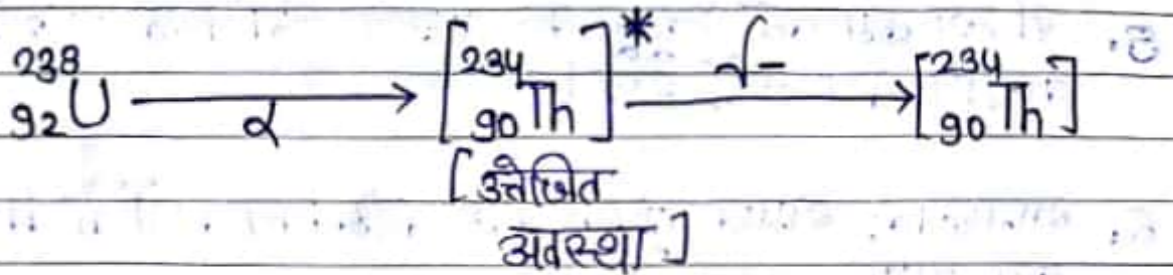 ²³⁸₉₂U —α→ [²³⁴₉₀Th]* —√-→ [²³⁴₉₀Th]
[उत्तेजित
अवस्था]